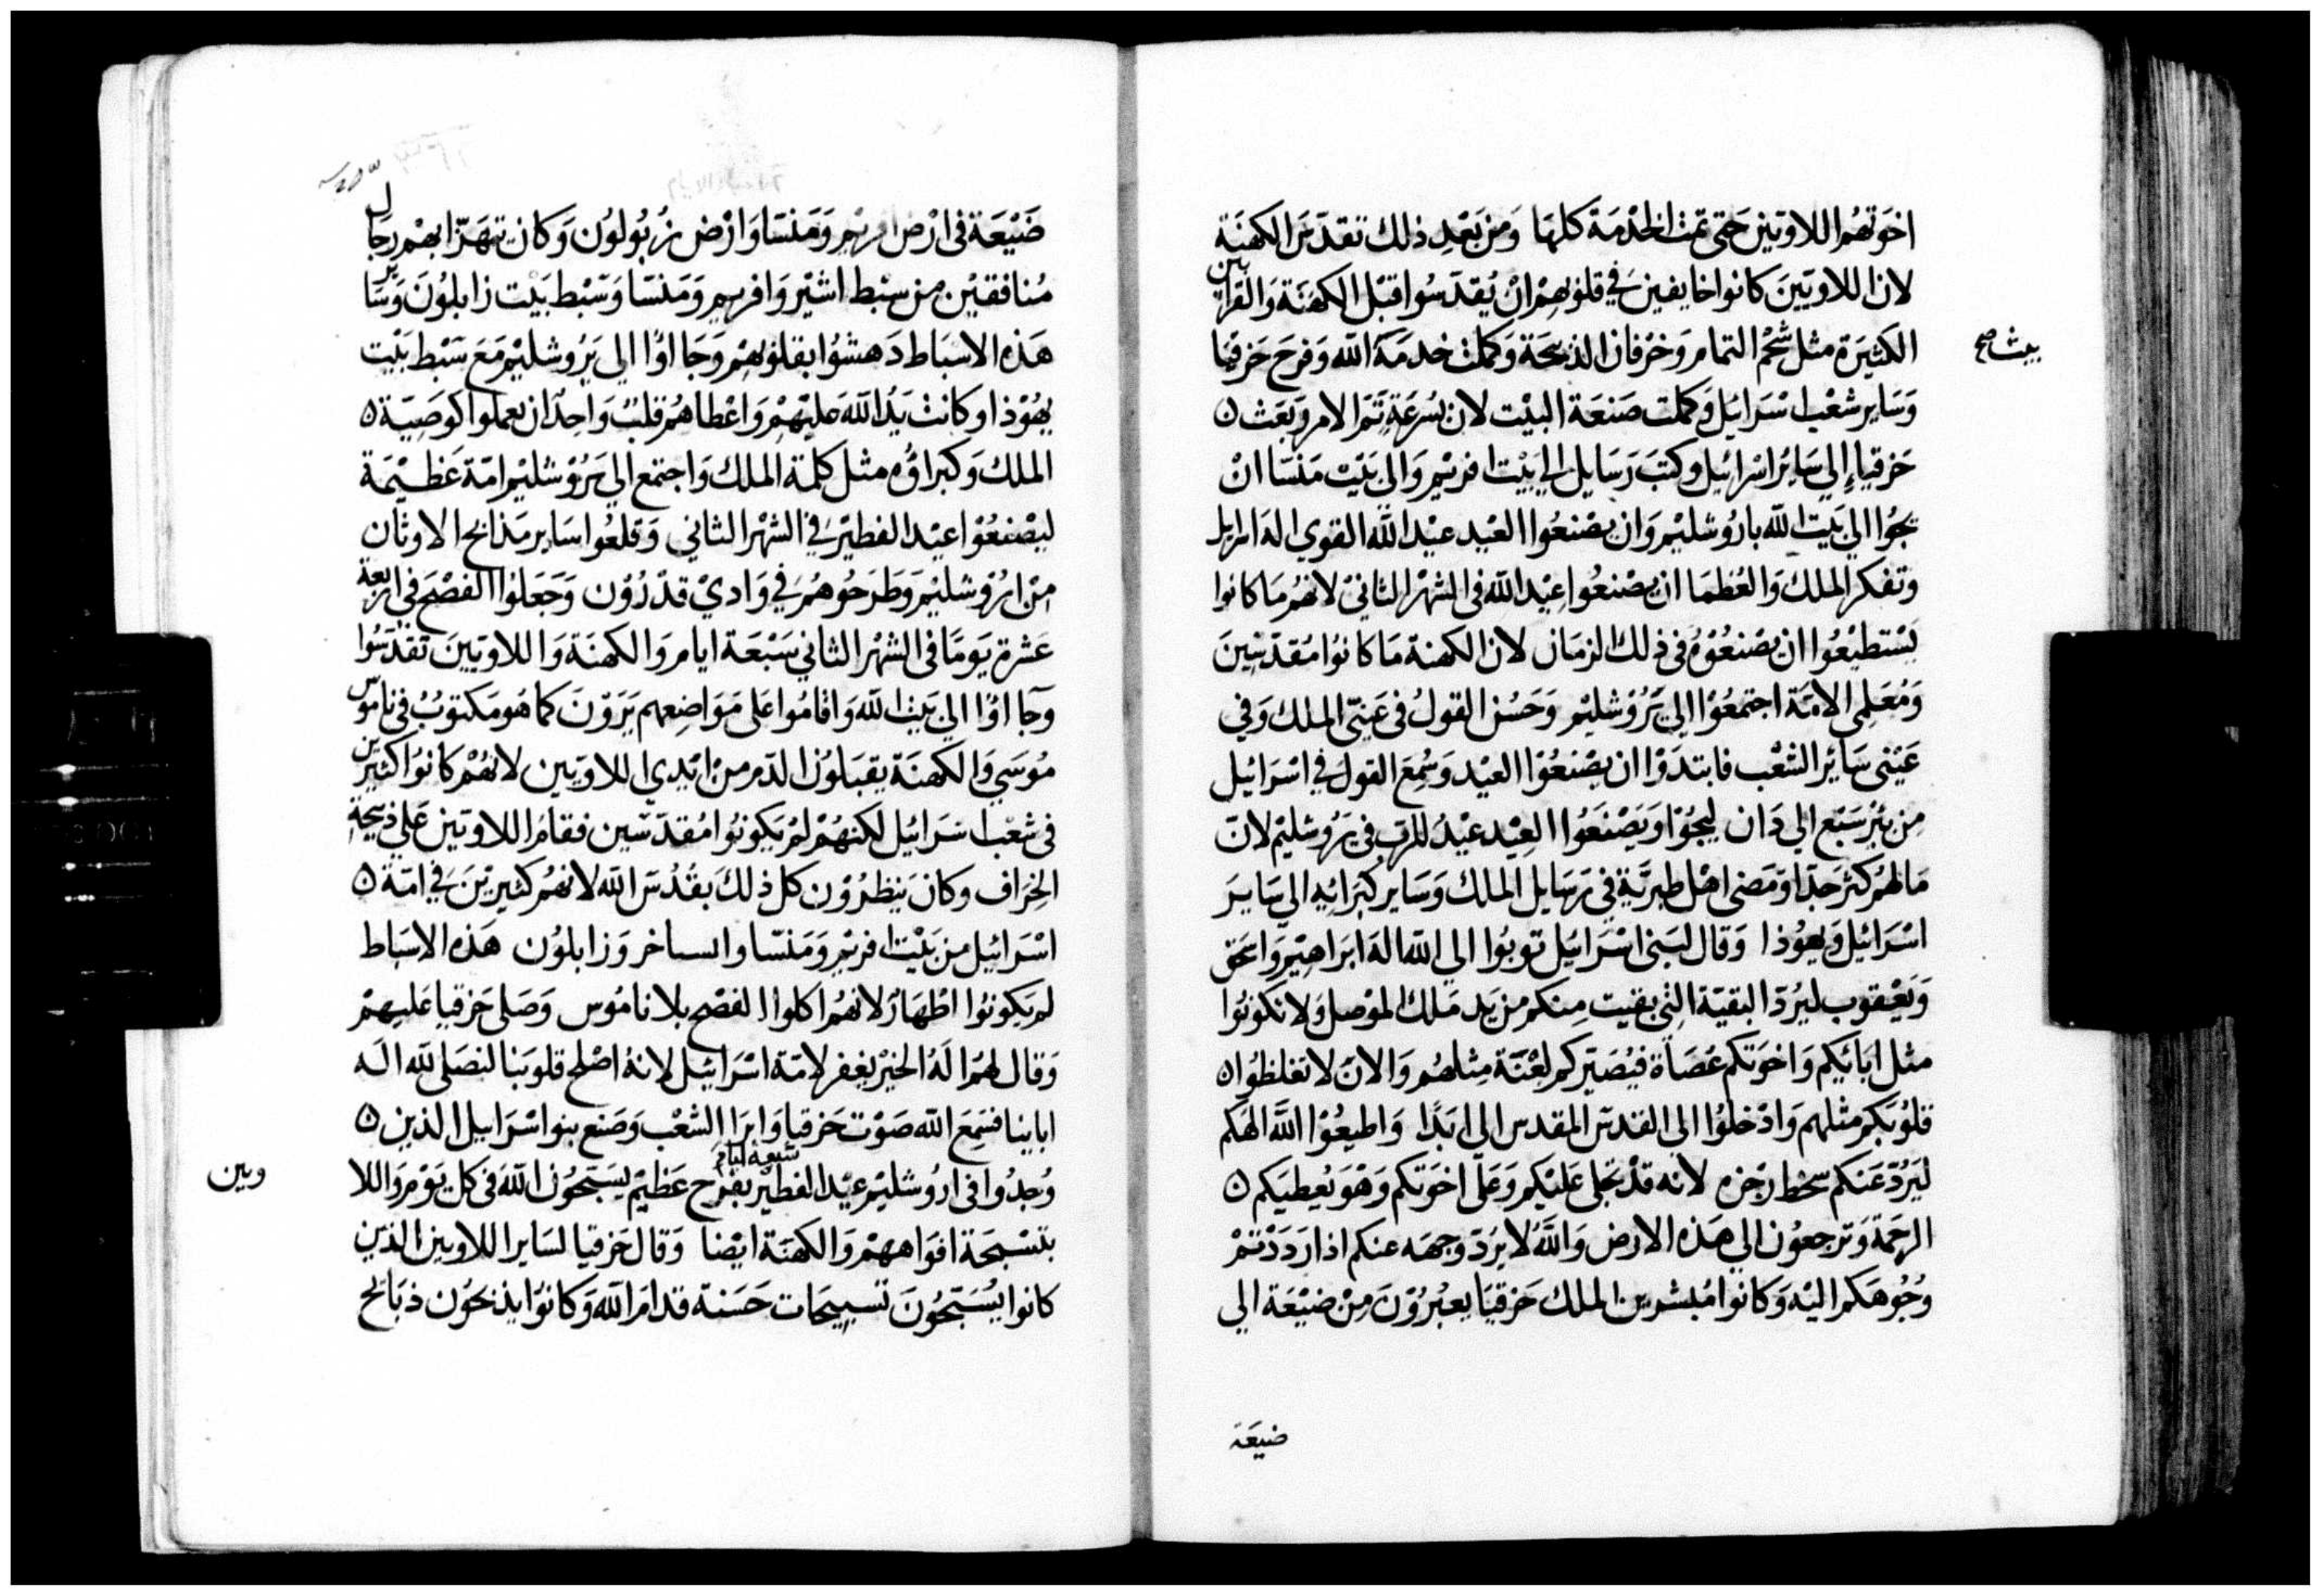 اخوَتهُم اللاويّين حَتى تمت الخدْمَة كلهَا وَمن بَعْدِ ذلك تقدّسَ الكهنَة
لان اللاويّينَ كانوا خايفين في قلوبهمْ انْ يُقدّسُوا قبْل الكهَنَة وَالقرابين
الكثيرَة مثل شحْم التمام وَخرْفان الذبيحَة وَكملت خدمَة الله وَفرحَ حَزقيا
وَسَاير شعْب اسْرَايل وَكملت صَنعَة البيْت لان بسُرعَةٍ تَمّ الامر وَبَعَث ٥
حَزقيا إلي سَايُر اسْرائيل وكتبَ رَسَايل الي بَيْت افريم وَالي بَيْت مَنسّا انْ
يجُوا الي بَيت الله باروُشليم وَان يصْنعُوا العْيد عيْد الله القوي اله اسرايل
وتفكر الملك وَالعُظمَا ان يصْنعُوا عيْد الله في الشهْر الثاني لانهُم مَا كانوا
يَسْتطيْعُوا ان يصْنعُوُه في ذلك الزمَان لان الكهنة مَا كانوُا مُقدّسينَ
وَمُعَلمي الامّة اجتمعُوْا الي يَرُوْشليْم وَحَسُن القولُ في عَينَي الملك وَفي
عَيْنى سَائر الشعْب فابتدَوْا ان يصْنعُوْا العيْد وَسُمِعَ القول في اسْرَائيل
مِن بيْر سَبْع الي دَان ليجُوْا وَيَصْنَعُوا العِيْد عيْدُ للرَب في يَرُوشليْم لانّ
مَالهُم كثر جَدّا وَمَضى اهْل طبريَّة في رَسَايل الملك وَسَاير كبرَائِه الي سَايرَ
اسْرَائيل وَيهوُذا وَقال لبَني اسْرَائيل توبُوا الي الله اله ابرَاهيْم وَاسحَق
وَيَعْقوب ليرُدّ البقيّة التي بقيت مِنكم من يَد مَلك الموْصل وَلا تكونوُا
مثل ابائيكم وَاخوَتكم عُصَاة فيُصَيّركم لعْنَة مثلهُم وَالان لا تغلظوُا ٥
قلوُبَكم مثلهم وَادْخلوُا الي القدسَ المقدس الي ابَدًا وَاطيعُوْا اللهَ الهَكم
ليَرُدّ عَنكم سخط رجْزه لانه قدْ تجلي عَليْكم وَعَلى اخوَتكم وَهوَ يُعطيَكم ٥
الرحمَة وَترجعوُن الي هَذه الارض وَاللهُ لا يَردّ وجهَه عنكم اذا رَدَدْتمْ
وُجُوْهَكم اليْه وَكانوا مُبشرين الملك حَزقيَا يعبُروُنَ مِنْ ضيْعَة الي
ضيعَة
ضَيْعَة في ارْض افريْم وَمَنسّا وَارْض زُبُولوُن وَكان يتهَزّا بهم رجَال
مُنافقيْن من سبْط اشيْر وَافريم وَمَنسّا وَسّبْط بَيْت زابلوُنَ وَسَاير
هَذه الاسْبَاط دَهشوُا بقلوُبهمْ وَجَااوًا الي يَرُوشليْم مَعَ سَبْط بَيْت
يهُوْذا وكانت يَدُ الله عليْهمْ وَاعْطاهُم قلبٌ وَاحِدًا ان يعملوا كوَصِيّة ٥
الملك وَكبراؤُه مثل كلمة الملك وَاجتمع الي يَرُوْشليْم امّة عَظيْمَة
ليصْنعُوْا عيْد الفطيْر في الشهْر الثاني وَقلعُوا سَاير مَذابح الاوثان
مِن ارُوْشليْم وَطَرَحُوهُم في وَادي قدْرُوْن وَجَعَلوُا الفصْحَ في اربعة
عَشرة يَومًا في الشهْر الثاني سَبْعَة ايام وَالكهنَة وَاللاويّينَ تقدّسُوا
وَجااوًا الي بَيْت الله وَاقامُوا عَلى مَوَاضِعهم يَرَوْنَ كما هوَ مَكتوُبٌ في ناموس
مُوسَي وَالكهنَة يقبَلوُن الدّم من ايْدي اللاويّين لانهُمْ كانوُا كثيرين
في شعْب اسْرَائيْل لكنهُمْ لمْ يَكونوُا مُقدّسّين فقامُ اللاويّين عَلي ذبيحة
الخِرَاف وكانَ يَنظرُوْن كل ذلكَ بقُدُسَ الله لانهُم كثيريْنَ في امّة ٥
اسْرَائيْل من بَيْت افريْم وَمَنسّا وايساخر وَزابلوُن هَذه الاسْبَاط
لم يَكونوُا اطْهَارٌ لانهُم اكلوا الفصْح بلا نامُوس وَصَلى حَزقيا عَليهمْ
وَقال لهُم الهُ الخيْر يغفر لامّة اسْرَائيْل لانهُ اصْلح قلوبَنا لنصَلى لله اله
اباينا فسَمِعَ الله صَوْت حَزقيا وَابرَا الشعْب وَصَنع بنو اسْرَاييل الذين ٥
وُجدُوا في ارُوشليْم عيْد الفطيْر سَبعة ايام بفرْح عَظيْم يسَبّحُون الله في كل يَوْم وَاللا
وبين
بتسْبحَة افوَاههمْ وَالكهنَة ايْضا وَقال حَزقيا لسَاير اللاويين الذين
كانوا يُسَبّحُونَ تسْبيحَات حَسَنة قدامَ الله وَكانوُا يذبحوُن ذبَائح